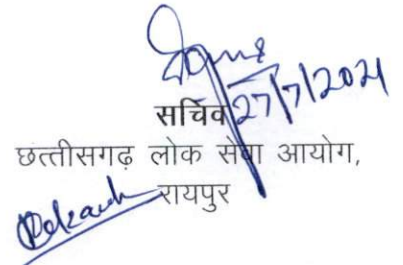 27/7/2021
सचिव
छत्तीसगढ़ लोक सेवा आयोग,
रायपुर